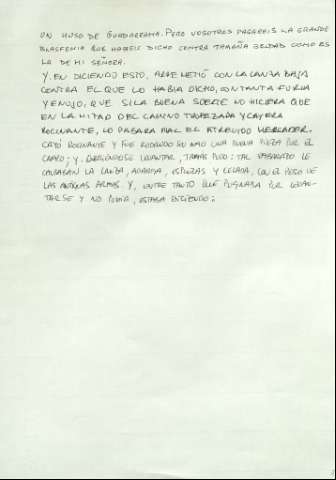 UN HUSO DE GUADARRAMA. PERO VOSOTROS PAGAREIS LA GRANDE
BLASFEMIA QUE HABEIS DICHO CONTRA TAMAÑA BELDAD COMO ES
LA DE MI SEÑORA.
Y, EN DICIENDO ESTO, ARREMETIÓ CON LA LANZA BAJA
CONTRA EL QUE LO HABIA DICHO, CON TANTA FURIA
Y ENOJO, QUE SI LA BUENA SUERTE NO HICIERA QUE
EN LA MITAD DEL CAMINO TROPEZARA Y CAYERA
ROCINANTE, LO PASARA MAL EL ATREVIDO MERCADER.
CAYÓ ROCINANTE Y FUE RODANDO SU AMO UNA BUENA PIEZA POR EL
CAMPO; Y, QUERIÉNDOSE LEVANTAR, JAMAS PUDO: TAL EMBARAZO LE
CAUSABAN LA LANZA, ADARGA, ESPUELAS Y CELADA, CON EL PESO DE
LAS ANTIGUAS ARMAS. Y, ENTRE TANTO QUE PUGNABA POR LEVAN-
TARSE Y NO PODIA, ESTABA DICIENDO: